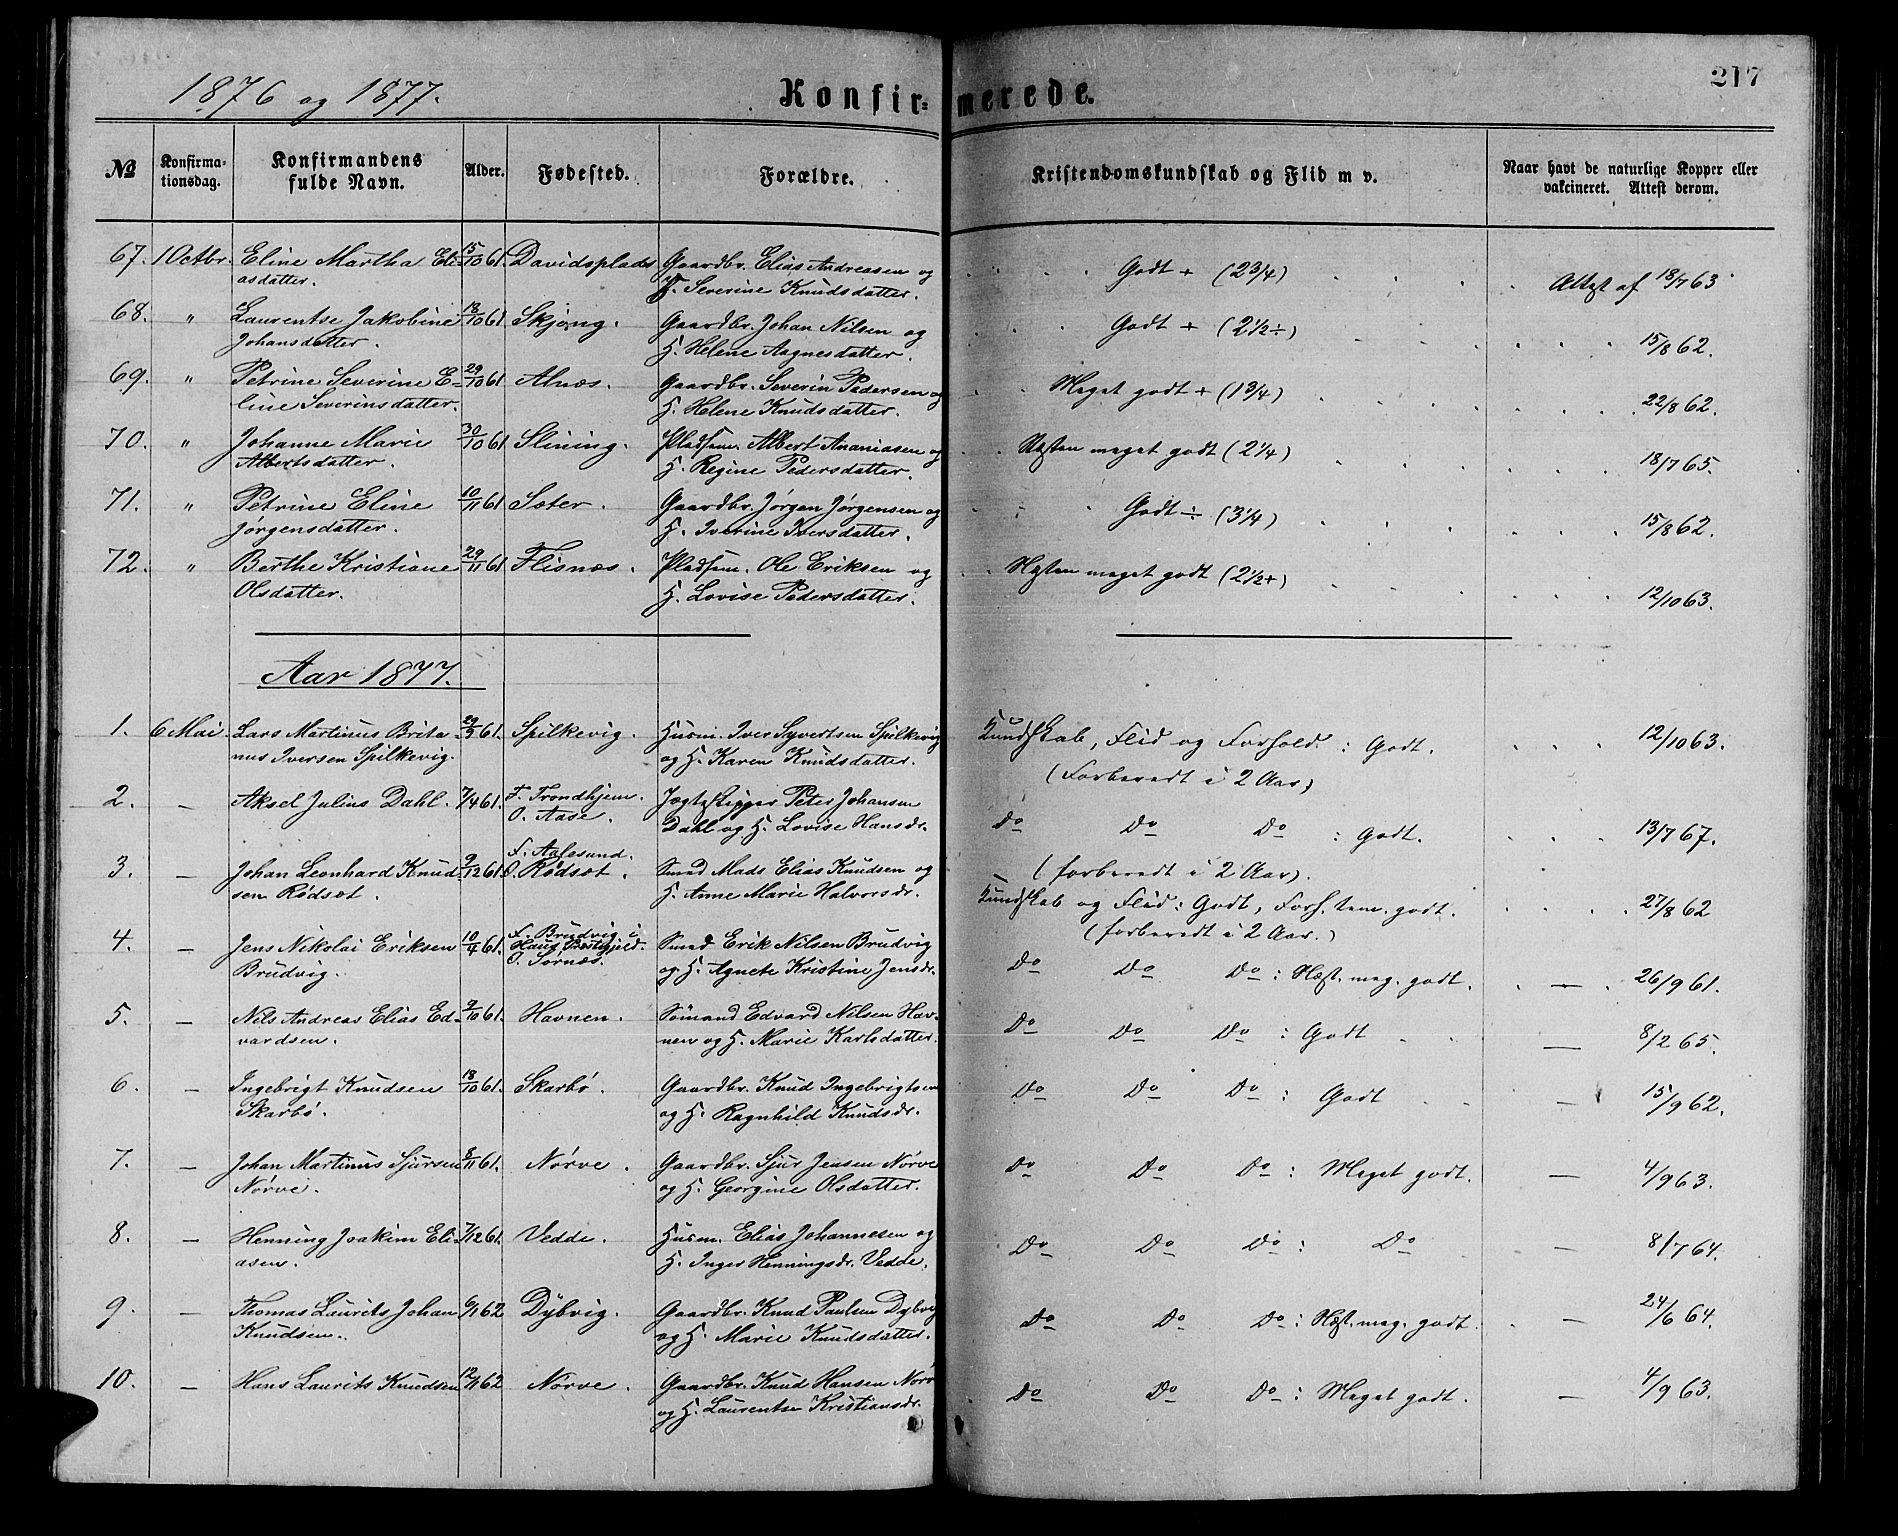 1876 og 1877.
Konfirmerede.
217
№
Konfirmationsdag.
Konfirmandens fulde Navn.
Alder.
Fødested.
Forældre.
Kristendomskundskab og Flid m v.
Naar havt de naturlige Kopper eller vakcineret. Attest derom.
67. 1 Octbr. Eline Martha Eli- 15/10 61. Davidsplads Gaardbr. Elias Andreasen og Godt + (2 3/4) Attest af 18/7 63
asdatter. H. Severine Knudsdatter.
68. " Laurentse Jakobine 18/10 61. Skjong. Gaardbr. Johan Nilsen og Godt + (2 1/2 ÷) 15/8 62.
Johansdatter. H. Helene Aagnesdatter.
69. " Petrine Severine E- 29/10 61. Alnæs. Gaardbr. Severin Pedersen og Meget godt + (1 3/4) 22/8 62.
line Severinsdatter. H. Helene Knudsdatter.
70. " Johanne Marie 30/10 61 Slining. Pladsm. Albert Ananiasen og Næsten meget godt (2 1/4) 18/7 65.
Albertsdatter. H. Regine Pedersdatter.
71. " Petrine Eline 10/11 61 Sæter. Gaardbr. Jørgen Jørgensen og Godt ÷ (3 1/4) 15/8 62.
Jørgensdatter. H. Iverine Iversdatter.
72. " Berthe Kristiane 29/11 61 Flisnæs. Pladsm. Ole Eriksen og Næsten meget godt (2 1/2 +) 12/10 63.
Olsdatter. H. Lovise Pedersdatter.
Aar 1877.
1. 6 Mai. Lars Martinus Brita- 29/3 61. Spilkevig. Husm. Iver Syvertsen Spilkevig Kundskab, Flid og Forhold: Godt. 12/10 63.
nus Iversen Spilkevig. og H. Karen Knudsdatter. (Forberedt i 2 Aar)
2. — Aksel Julius Dahl. 7/4 61. F. Trondhjem. Jægteskipper Peter Johansen Do Do Do : Godt. 13/7 67.
O. Aase. Dahl og H. Lovise Hansdr. (forberedt i 2 Aar).
3. — Johan Leonhard Knud- 9/12 61. F. Aalesund. Smed Mads Elias Knudsen og Kundskab og Flid: Godt, Forh. tem. godt. 27/8 62
sen Rødsæt. O. Rødsæt. H. Anne Marie Halvorsdr. (forberedt i 2 Aar.)
4. — Jens Nikolai Eriksen 10/4 61. F. Brudvig i Smed Erik Nilsen Brudvig Do Do Do : Næst. meg. godt. — 26/9 61.
Brudvig. Haus Præstegjeld. O. Sørnæs. og H. Agnete Kristine Jensdr.
5. — Nils Andreas Elias Ed- 9/10 61. Havnen. Sømand Edvard Nilsen Hav- Do Do Do : Godt — 8/2 65.
vardsen. nen og H. Marie Karlsdatter.
6. — Ingebrigt Knudsen 18/10 61. Skarbø. Gaardbr. Knud Ingebrigtsen Do Do Do : Godt — 15/9 62.
Skarbø. og H. Ragnhild Knudsdr.
7. — Johan Martinus Sjursen 8/11 61. Nørve. Gaardbr. Sjur Jensen Nørve Do Do Do : Meget godt. — 4/9 63.
Nørve. og H. Georgine Olsdatter.
8. — Henning Joakim Eli- 7/12 61. Vedde. Husm. Elias Johannesen og Do Do Do : Do — 8/7 64.
asen. H. Inger Henningsdr. Vedde.
9. — Thomas Laurits Johan 6/1 62 Dybvig. Gaardbr. Knud Paulsen Dybvig Do Do Do : Næst. meg. godt. — 24/6 64.
Knudsen. og H. Marie Knudsdatter.
10. — Hans Laurits Knudsen 12/1 62 Nørve. Gaardbr. Knud Hansen Nørv Do Do Do : Meget godt. — 4/9 63.
og H. Laurentse Kristiansdr.